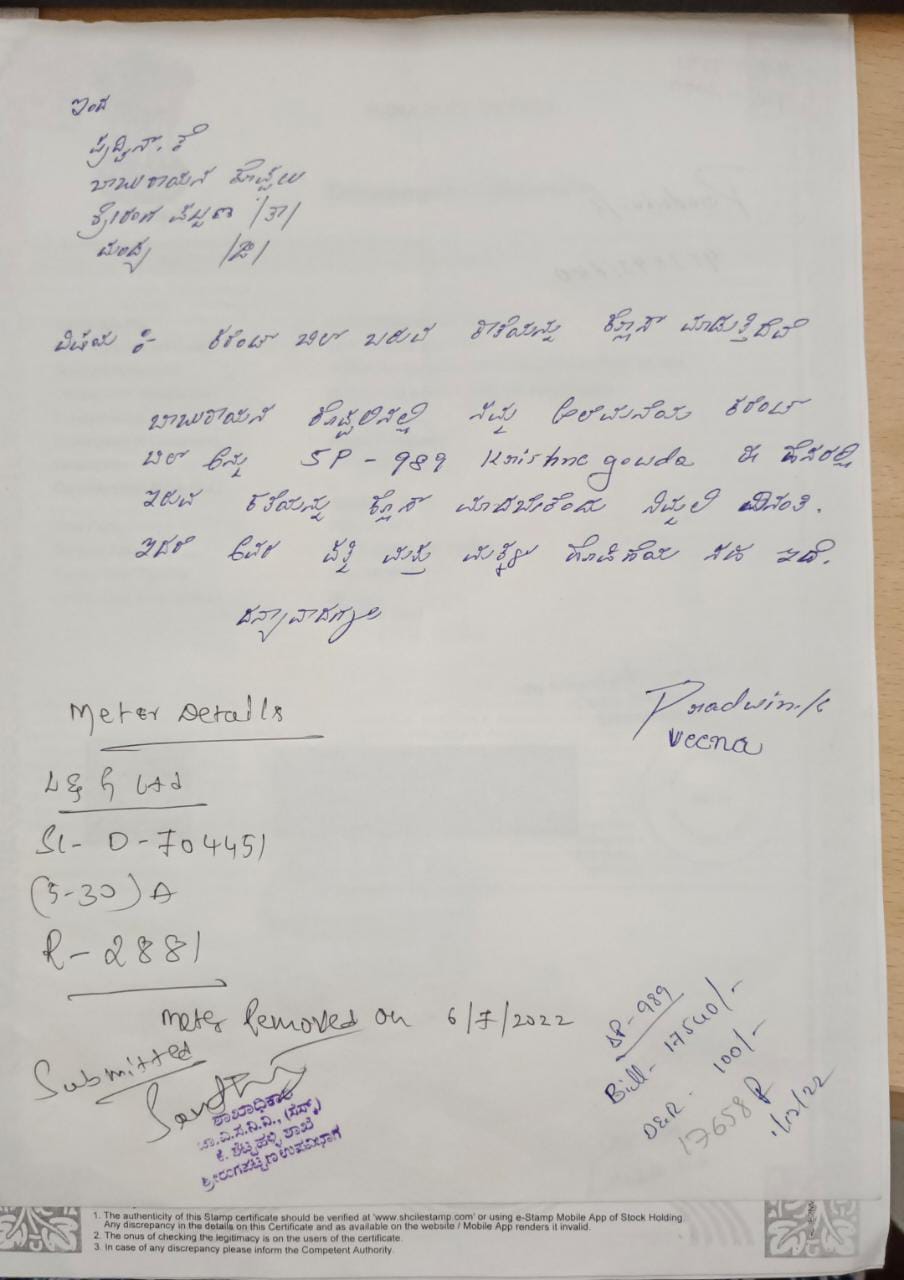 ಇಂದ
ಪ್ರದ್ವಿನ್. ಕೆ
ಬಾಬುರಾಯನ ಕೊಪ್ಪಲು
ಶ್ರೀರಂಗ ಪಟ್ಟಣ /ತಾ/
ಮಂಡ್ಯ /ಜಿ/
ವಿಷಯ :- ಕರೆಂಟ್ ಬಿಲ್ ಬರುವ ಖಾತೆಯನ್ನು ಕ್ಲೋಸ್ ಮಾಡುತ್ತಿದೆವೆ
ಬಾಬುರಾಯನ ಕೊಪ್ಪಲಿನಲ್ಲಿ ನಮ್ಮ ಆಲೆಮನೆಯ ಕರೆಂಟ್
ಬಿಲ್ ಅನ್ನು SP-989 Krishne gowda ಈ ಹೆಸರಲ್ಲಿ
ಇರುವ ಕತೆಯನ್ನು ಕ್ಲೋಸ್ ಮಾಡಬೇಕೆಂದು ನಿಮ್ಮಲಿ ವಿನಂತಿ.
ಇದಕೆ ಅವರ ಪತ್ನಿ ಮತ್ತು ಮಕ್ಕಳ ಒಪ್ಪಿಗೆಯು ಸಹ ಇದೆ.
ಧನ್ಯಾವಾದಗಳು
Pradwin.k
Veena
Meter Details
L&G Ltd
Sl- D-704451
(5-30) A
R-2881
Meter Removed on 6/7/2022
Submitted
ಶಾಖಾಧಿಕಾರಿ
ಚಾ.ವಿ.ಸ.ನಿ.ನಿ., (ಸೆಸ್ಕ್)
ಕೆ. ಶೆಟ್ಟಹಳ್ಳಿ ಶಾಖೆ
ಶ್ರೀರಂಗಪಟ್ಟಣ ಉಪವಿಭಾಗ
SP-989
Bill- 17540/-
D&R- 100/-
17658
1/12/22
1. The authenticity of this Stamp certificate should be verified at 'www.shcilestamp.com' or using e-Stamp Mobile App of Stock Holding.
Any discrepancy in the details on this Certificate and as available on the website / Mobile App renders it invalid.
2. The onus of checking the legitimacy is on the users of the certificate.
3. In case of any discrepancy please inform the Competent Authority.